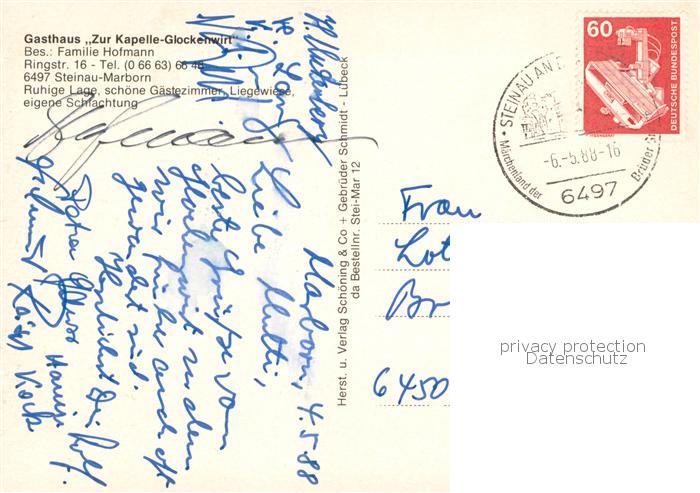 Gasthaus „Zur Kapelle-Glockenwirt"
Bes.: Familie Hofmann
Ringstr. 16 - Tel. (0 66 63) 66 48
6497 Steinau-Marborn
Ruhige Lage, schöne Gästezimmer, Liegewiese,
eigene Schlachtung
Marborn, 4.5.88
Liebe Mutti,
beste Grüße vom
zu dem
wir früher auch oft
gewandert sind.
Herzlichst Dein Rolf.
Hofmann
Herst. u. Verlag Schöning & Co + Gebrüder Schmidt - Lübeck
da Bestellnr. Stei-Mar 12
60
DEUTSCHE BUNDESPOST
STEINAU AN
-6.-5.88-16
6497
Märchenland der Brüder
Frau
Lot
Br
6450
privacy protection
Datenschutz